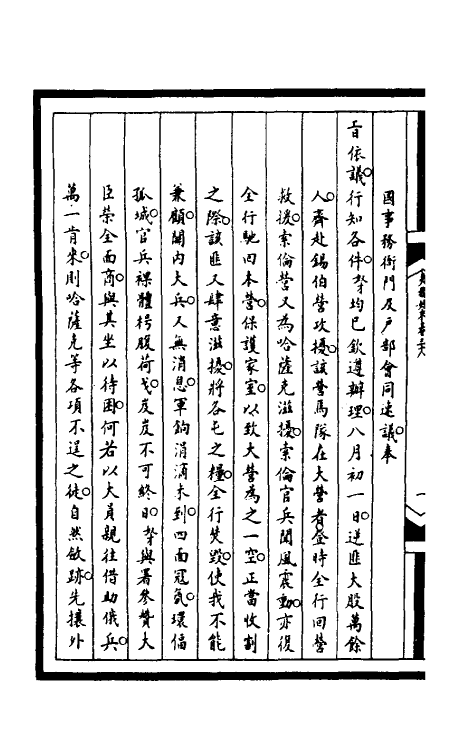 國事務衙門及戶部會同速議。奉
旨依議。行知各件。拏均已欽遵辦理。八月初一日。逆匪大股萬餘
人。齊赴錫伯營攻擾。該營馬隊在大營者登時全行回營
救援。索倫營又為哈薩克滋擾。索倫官兵聞風震動。亦復
全行馳回本營。保護家室。以致大營為之一空。正當收割
之際。該匪又肆意滋擾。將各屯之糧。全行焚毀。使我不能
兼顧。關內大兵。又無消息。軍餉涓滴未到。四面寇氛環偪
孤城。官兵裸體枵腹荷戈。岌岌不可終日。拏與署參贊大
臣榮全面商。與其坐以待困。何若以大員親往借助俄兵。
萬一肯來。則哈薩克等各項不逞之徒。自然斂跡。先攘外